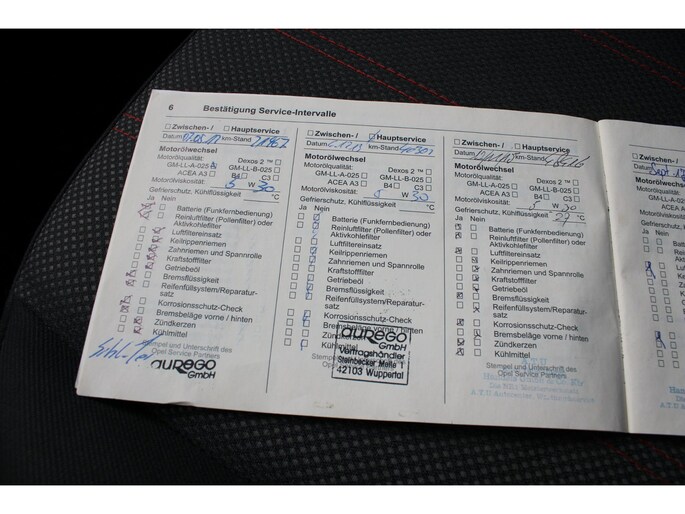 6 Bestätigung Service-Intervalle
Zwischen- / Hauptservice
Datum km-Stand
Motorölwechsel
Motorölqualität: Dexos 2 ™
GM-LL-A-025 GM-LL-B-025
ACEA A3 B4 C3
Motorölviskosität: 5 W 30
Gefrierschutz, Kühlflüssigkeit °C
Ja Nein
Batterie (Funkfernbedienung)
Reinluftfilter (Pollenfilter) oder
Aktivkohlefilter
Luftfiltereinsatz
Keilrippenriemen
Zahnriemen und Spannrolle
Kraftstofffilter
Getriebeöl
Bremsflüssigkeit
Reifenfüllsystem/Reparatur-
satz
Korrosionsschutz-Check
Bremsbeläge vorne / hinten
Zündkerzen
Kühlmittel
Stempel und Unterschrift des
Opel Service Partners
aurego
GmbH
Zwischen- / Hauptservice
Datum km-Stand
Motorölwechsel
Motorölqualität: Dexos 2 ™
GM-LL-A-025 GM-LL-B-025
ACEA A3 B4 C3
Motorölviskosität: 5 W 30
Gefrierschutz, Kühlflüssigkeit °C
Ja Nein
Batterie (Funkfernbedienung)
Reinluftfilter (Pollenfilter) oder
Aktivkohlefilter
Luftfiltereinsatz
Keilrippenriemen
Zahnriemen und Spannrolle
Kraftstofffilter
Getriebeöl
Bremsflüssigkeit
Reifenfüllsystem/Reparatur-
satz
Korrosionsschutz-Check
Bremsbeläge vorne / hinten
Zündkerzen
Kühlmittel
aurego
GmbH
Vertragshändler
Steinbecker Meile 1
42103 Wuppertal
Zwischen- / Hauptservice
Datum km-Stand
Motorölwechsel
Motorölqualität: Dexos 2 ™
GM-LL-A-025 GM-LL-B-025
ACEA A3 B4 C3
Motorölviskosität: 5 W 30
Gefrierschutz, Kühlflüssigkeit 27 °C
Ja Nein
Batterie (Funkfernbedienung)
Reinluftfilter (Pollenfilter) oder
Aktivkohlefilter
Luftfiltereinsatz
Keilrippenriemen
Zahnriemen und Spannrolle
Kraftstofffilter
Getriebeöl
Bremsflüssigkeit
Reifenfüllsystem/Reparatur-
satz
Korrosionsschutz-Check
Bremsbeläge vorne / hinten
Zündkerzen
Kühlmittel
Stempel und Unterschrift des
Opel Service Partners
A.T.U
Zwischen- /
Datum Sept
Motorölwechsel
Motorölqualität:
GM-LL-A-025
ACEA A3
Motorölviskosität:
Gefrierschutz, Kühl
Ja Nein